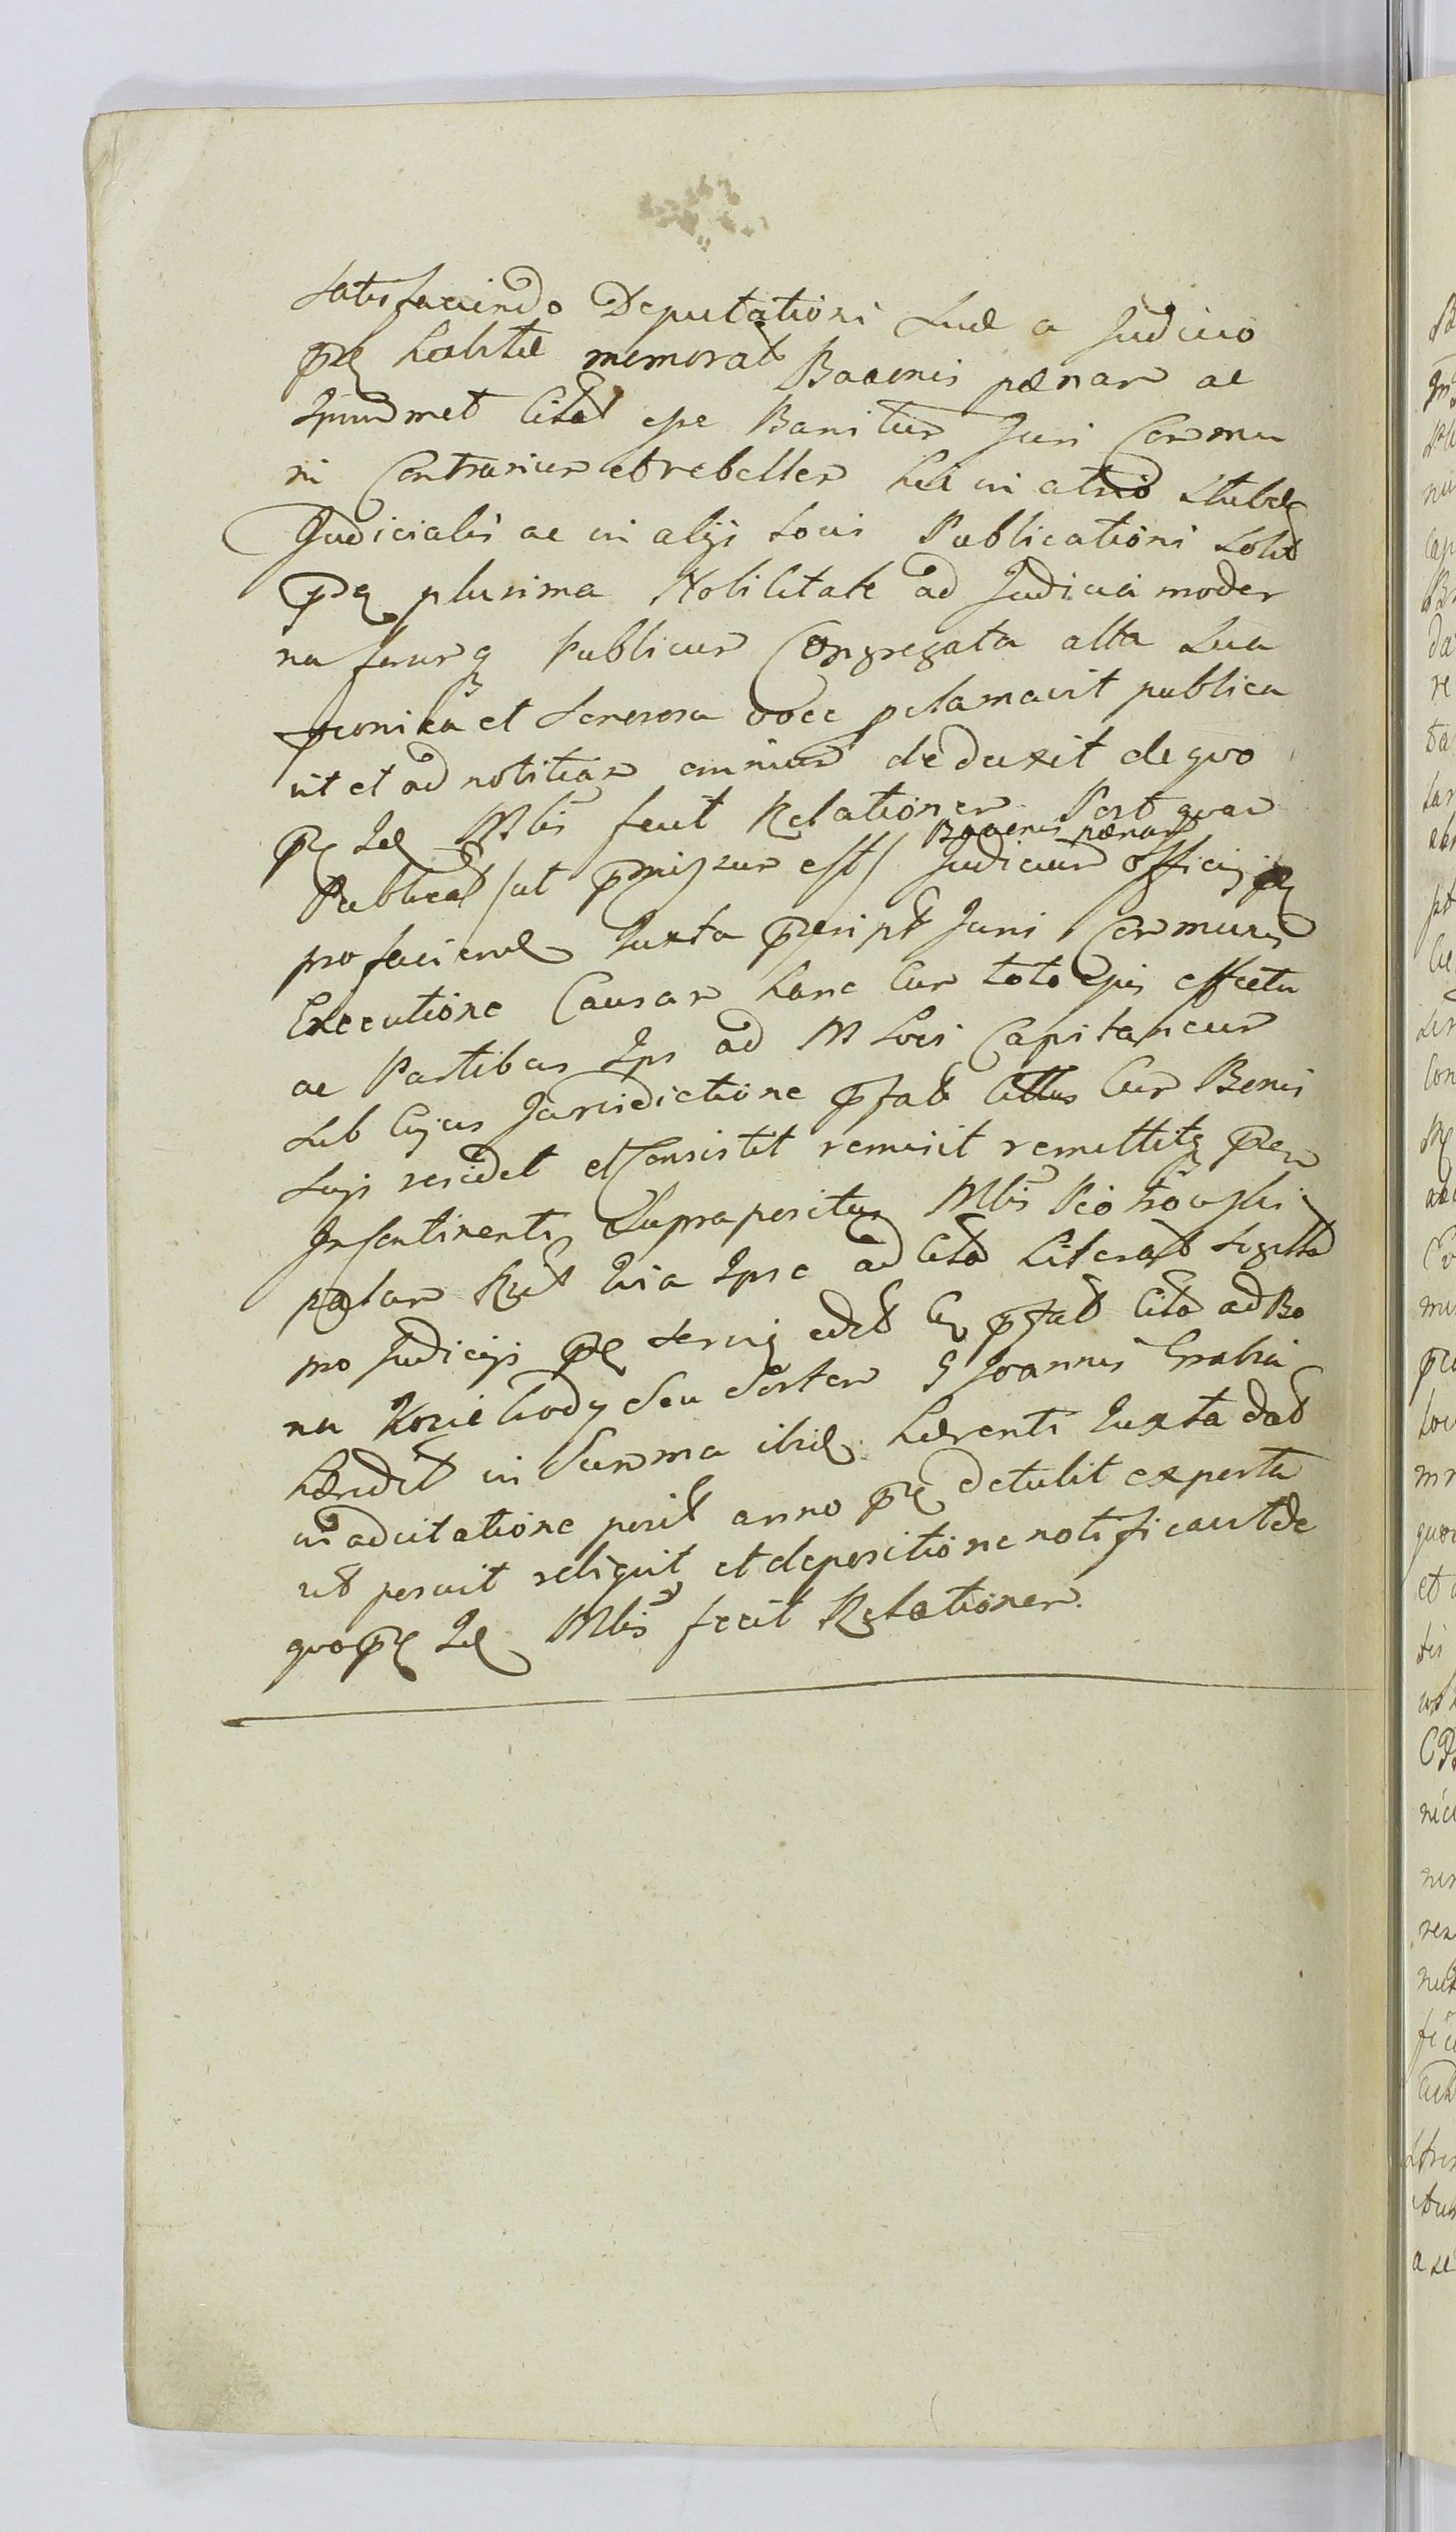 satisfaciendo Deputationi suæ a Judicio
pñ habitæ memorat Baaonis pænam ac
Ipsummet Citat esse Banitum Juri Commu
ni Contrarium et rebellem hic in atrio Stubæ
Judicialis ac in alys locis Publicationi solit
pñ plurima Nobilitate ad Judicia moder
na forumq Publicum Congregata alta sua
pconica et sonorosa voce pclamavit publica
vit et ad notitiam omnium deduxit de quo
pñ Id Mlis fecit Relationem. Post quam
Baaonis pænam
Publicat /ut pmissum est/ Judicium officii pñ
pro faciend Juxta pscript Juris Communis
Executione Causam hanc Cum toto ejus effectu
ac Partibus Ips ad M Loci Capitaneum
sub Cujus Jurisdictione pfat Cittus Cum Bonis
suis residet et Consistit remisit remittitq pñ
In Continenti Suprapositus Mlis Piotrowski
palam Rect quia Ipse ad Cita Literas sigillo
pro Judicys pñ servis edit Ex pfat Cita ad Bo
na Koziebrody seu Sortem G Joannis Grabia
hæredit in Summa ibid hærenti Juxta dat
in adcitatione posit anno pñ detulit exporta
vit posuit reliquit et depositione notificavit de
quo pñ Id Mlis fecit Relationem.